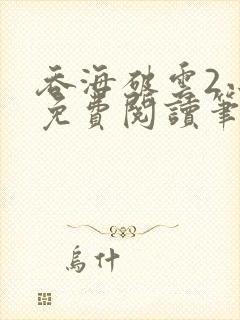 吞海破雲2
免費閱讀筆
烏什